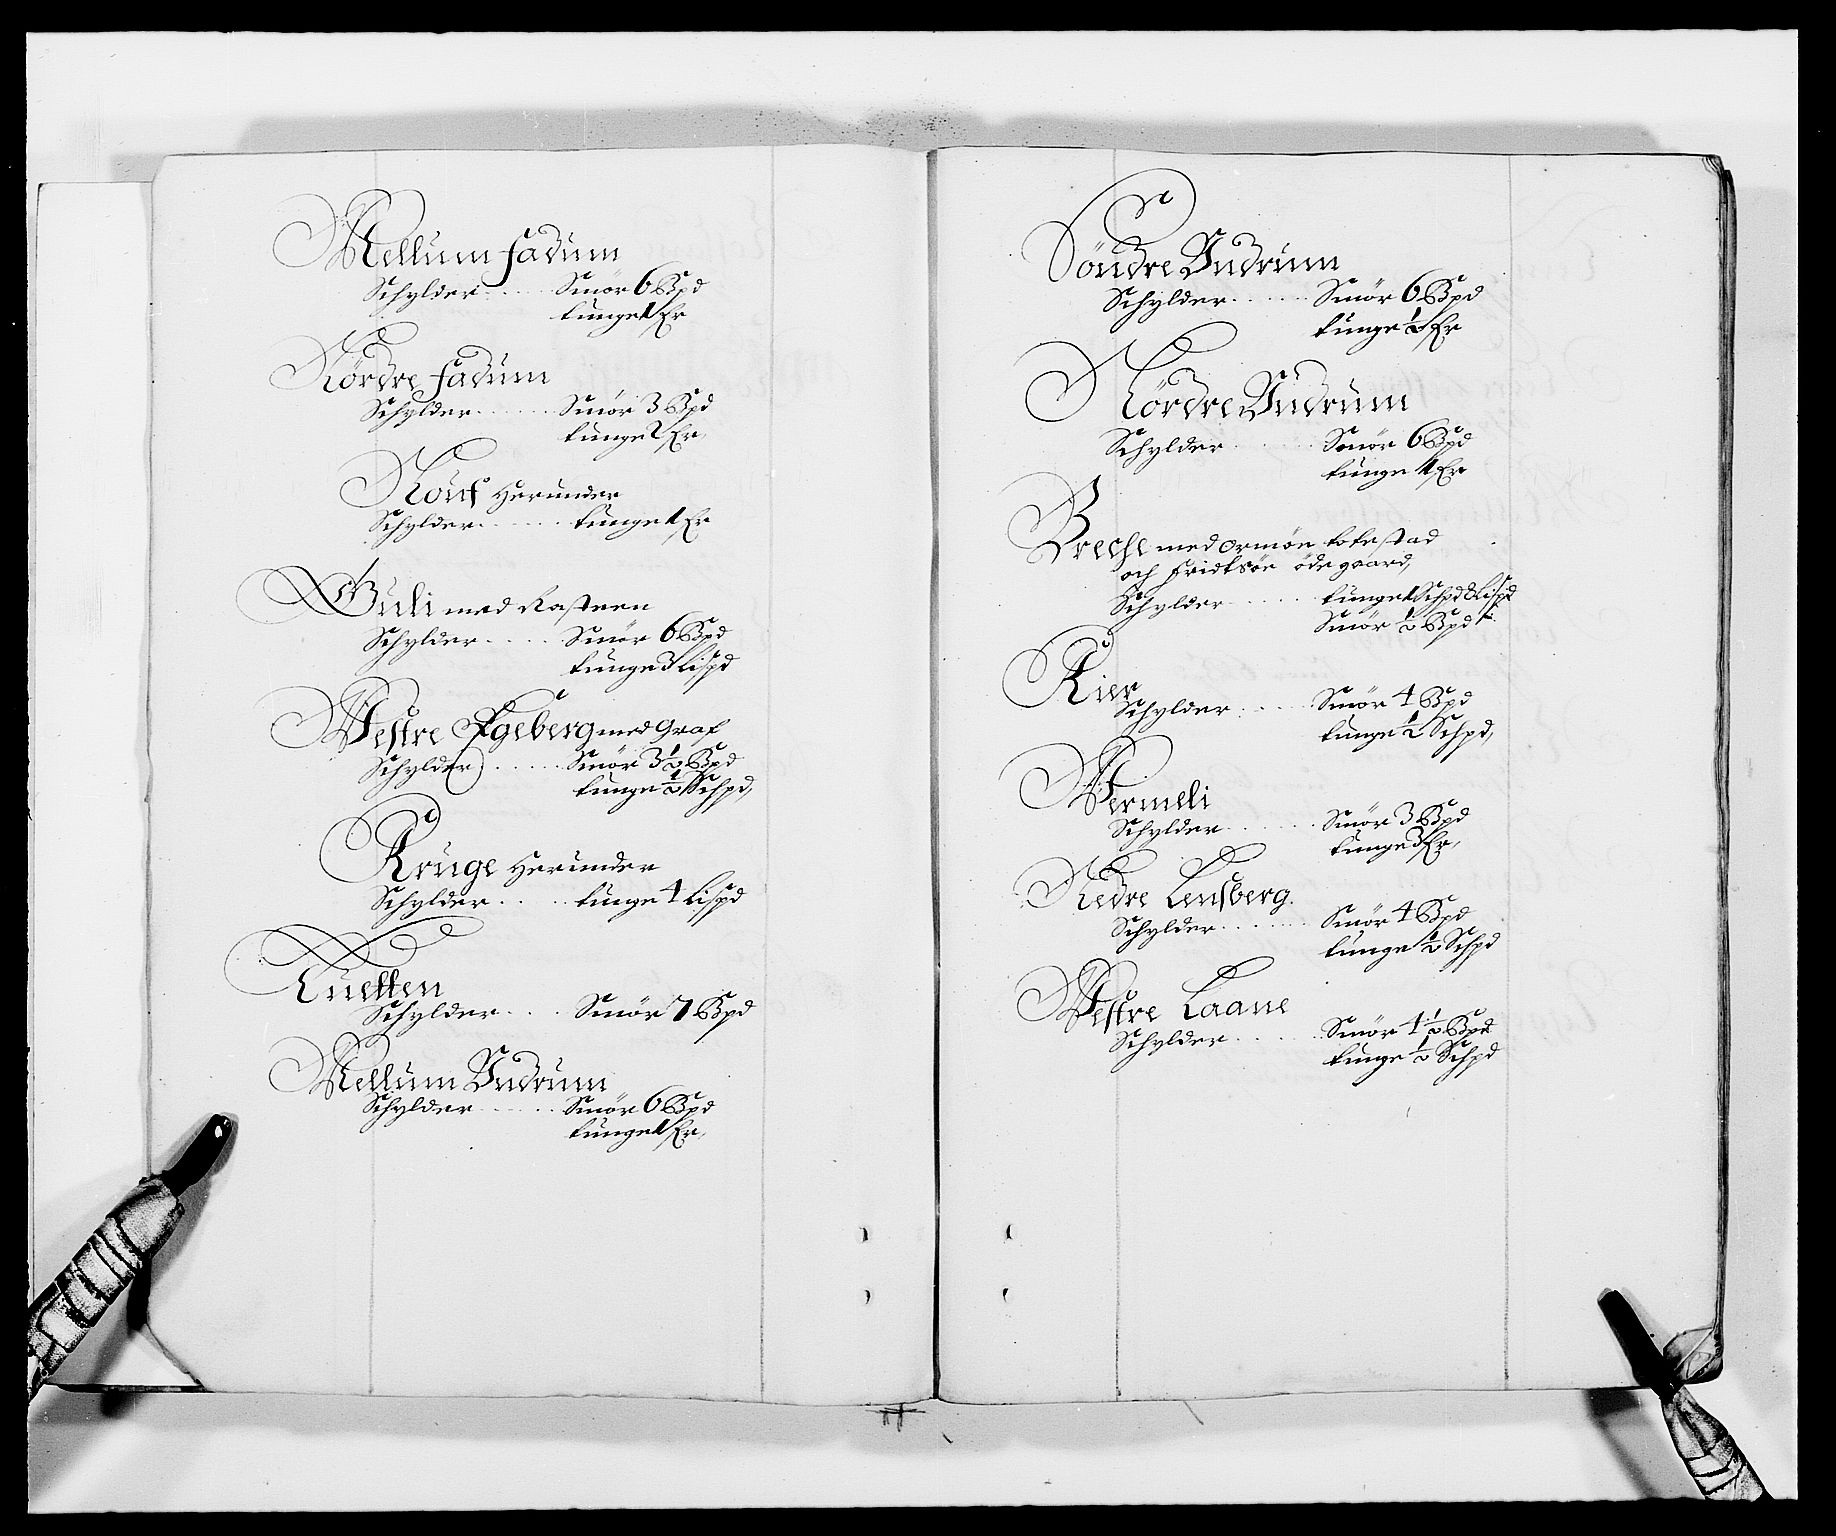 Mellum fadum
Schylder . . . . Smör 6 Bpd
tunge 1 Er
Nördre fadum
Schylder . . . . . . Smör 3 Bpd
tunge 2 Er,
Herunder
Schylder . . . . . . tunge 1 Er
Guli med Rasteen
Schylder . . . . . Smör 6 Bpd
tunge 3 Lispd
Westre Egeberg med Graf
Schylder . . . . . Smör 3½ Bpd
tunge ½ Schpd,
Kruge Herunder
Schylder . . . . tunge 4 Lispd
Tuetten
Schylder . . . . Smör 7 Bpd
Mellum Undrum
Schylder . . . . . . Smör 6 Bpd
tunge 1 Er,
Söndre Undrum
Schylder . . . . . . Smör 6 Bpd
tunge ½ Er
Nördre Undrum
Schylder . . . . . . Smör 6 Bpd
tunge 1 Er
Breche med ormöen tokestad
och fridksöe öde gaard,
Schylder . . . . . tunge 1 Schpd 8 Lispd
Smör ½ Bpd
Kier
Schylder . . . . . Smör 4 Bpd
tunge ½ Schpd,
Wermeli
Schylder . . . . . . Smör 3 Bpd
tunge 3 Er,
Nedre Lensberg.
Schylder . . . . . . Smör 4 Bpd
tunge ½ Schpd
Westre Laane
Schylder . . . . . . Smör 4½ Bpd
tunge ½ Schpd